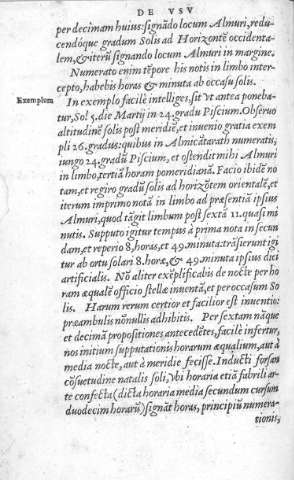 DE VSV
per decimam huius: signādo locum Almuri, redu-
cendóque gradum Solis ad Horizontē occidenta-
lem, & iterū signando locum Almuri in margine.
Numerato enim tēpore his notis in limbo inter-
cepto, habebis horas & minuta ab occasu solis.
Exemplum
In exemplo facilè intelliges: sit vt antea poneba-
tur, Sol 5. die Martij in 24. gradu Piscium. Obseruo
altitudinē solis post meridiē, et inuenio gratia exem
pli 26. gradus: quibus in Almicātarath numeratis,
iungo 24. gradū Piscium, et ostendit mihi Almuri
in limbo, tertiā horam pomeridianā. Facio ibidē no
tam, et regiro gradū solis ad horizōtem orientalē, et
iterum imprimo notā in limbo ad præsentiā ipsius
Almuri, quod tāgit limbum post sextā 11. quasi mi
nutis. Supputo igitur tempus à prima nota in secun
dam, et reperio 8, horas, et 49, minuta: trāsierunt igi
tur ab ortu solari 8. horæ, & 49 minuta ipsius diei
artificialis. Nō aliter exēplificabis de nocte per ho
ram æqualē officio stellæ inuentā, et per occasum So
lis. Harum rerum certior et facilior est inuentio:
præambulis nōnullis adhibitis. Per sextam nāque
et decimā propositiones antecedētes, facilè infertur,
nos initium supputationis horarum æqualium, aut à
media nocte, aut à meridie fecisse. Inducti forsan
cōsuetudine natalis soli, vbi horaria etiā fabrili ar-
te confecta (dicta horaria media secundum cursum
duodecim horarū) signāt horas, principiū numera-
tionis,